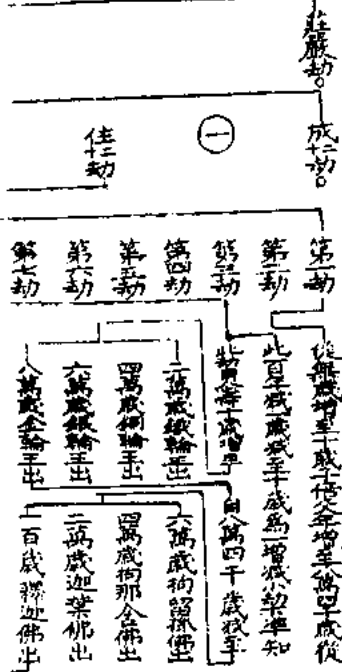 莊嚴劫。
成二十劫。
㊀
住二十劫
第一劫
第二劫
第三劫
第四劫
第五劫
第六劫
第七劫
從無歲增至十歲子倍父年增至八萬四千歲從
此百年減一歲減至十歲為一增減八劫準知
此劫
二萬歲鐵輪王出
四萬歲銅輪王出
六萬歲銀輪王出
八萬歲金輪王出
自八萬四千歲減至
六萬歲拘留孫佛出
四萬歲拘那含佛出
二萬歲迦葉佛出
一百歲釋迦佛出